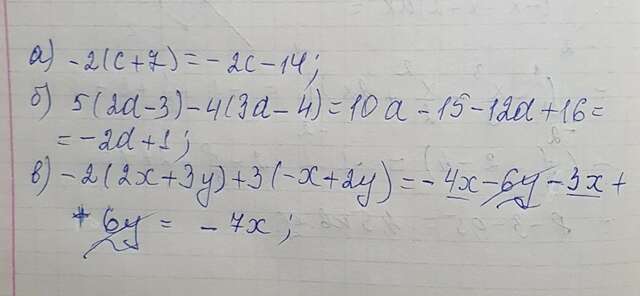 а) -2(c+7)=-2c-14;
б) 5(2a-3)-4(3a-4)=10a-15-12a+16=
=-2a+1;
в) -2(2x+3y)+3(-x+2y)=-4x-6y-3x+
+6y = -7x;